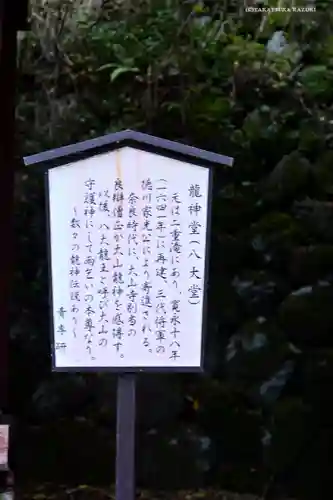 龍神堂(八大堂)
元は二重滝にあり、寛永十八年
(一六四一年)に再建、三代将軍の
徳川家光公により寄進される。
奈良時代に、大山寺別当の
良辯僧正が大山龍神を感得す。
以後、八大龍王と呼び大山の
守護神にして雨乞いの本尊なり。
〜数々の龍神伝説あり〜
青李研
(C)TAKATSUKA KAZUKI